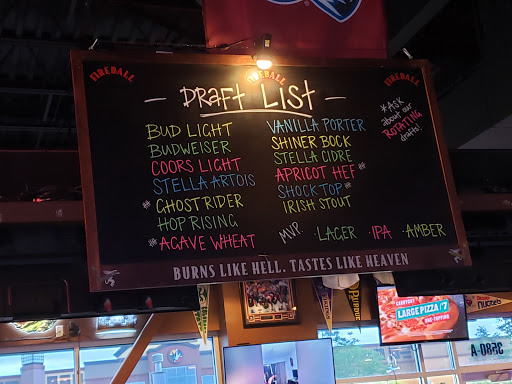 FIREBALL
FIREBALL
FIREBALL
- DRAFT LIST -
BUD LIGHT
BUDWEISER
COORS LIGHT
STELLA ARTOIS
#GHOST RIDER
HOP RISING
#AGAVE WHEAT
VANILLA PORTER
SHINER BOCK
STELLA CIDRE
APRICOT HEF#
SHOCK TOP#
IRISH STOUT
*ASK
about our
ROTATING
drafts!
MVP · LAGER · IPA · AMBER
BURNS LIKE HELL. TASTES LIKE HEAVEN
CARRYOUT
LARGE PIZZA $7
ONE-TOPPING
PURDUE
nuggets